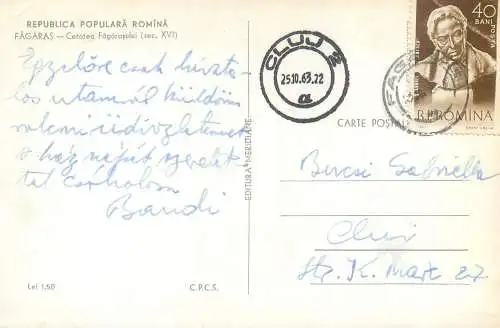 REPUBLICA POPULARĂ ROMÎNĂ
FĂGĂRAȘ — Cetatea Făgărașului (sec. XVI)
Egyelőre csak hivata-
los utamról küldöm
üdvözletemet
a ház népét szeretet-
tel csókolom
Bandi
Lei 1,50
C.P.C.S.
EDITURA MERIDIANE
CLUJ 2
25.10.63.22
40
BANI
POSTA
R.P.ROMINA
CARTE POȘTALĂ
Bercsi Gabriella
Cluj
Str. K. Marx 27